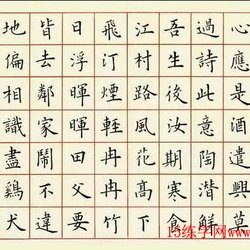 心應是酒遣興莫
過詩此意陶潛解
吾生後汝期寒食
江村路風花高下
飛汀煙輕冉冉竹
日淨暉暉田父要
皆去鄰家鬧不違
地偏相識盡鷄犬
15练字网